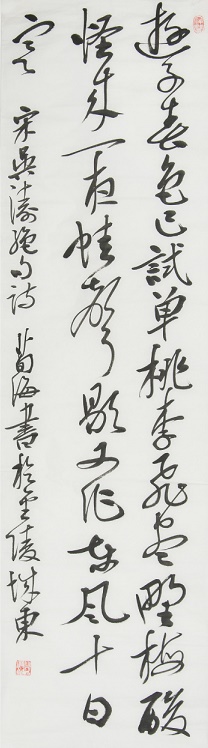 遊子春色已試单桃李飛尽野梅酸
怪来一夜蛙聲歇又作东风十日
寒 宋吳濤絕句詩 海書於零陵城東